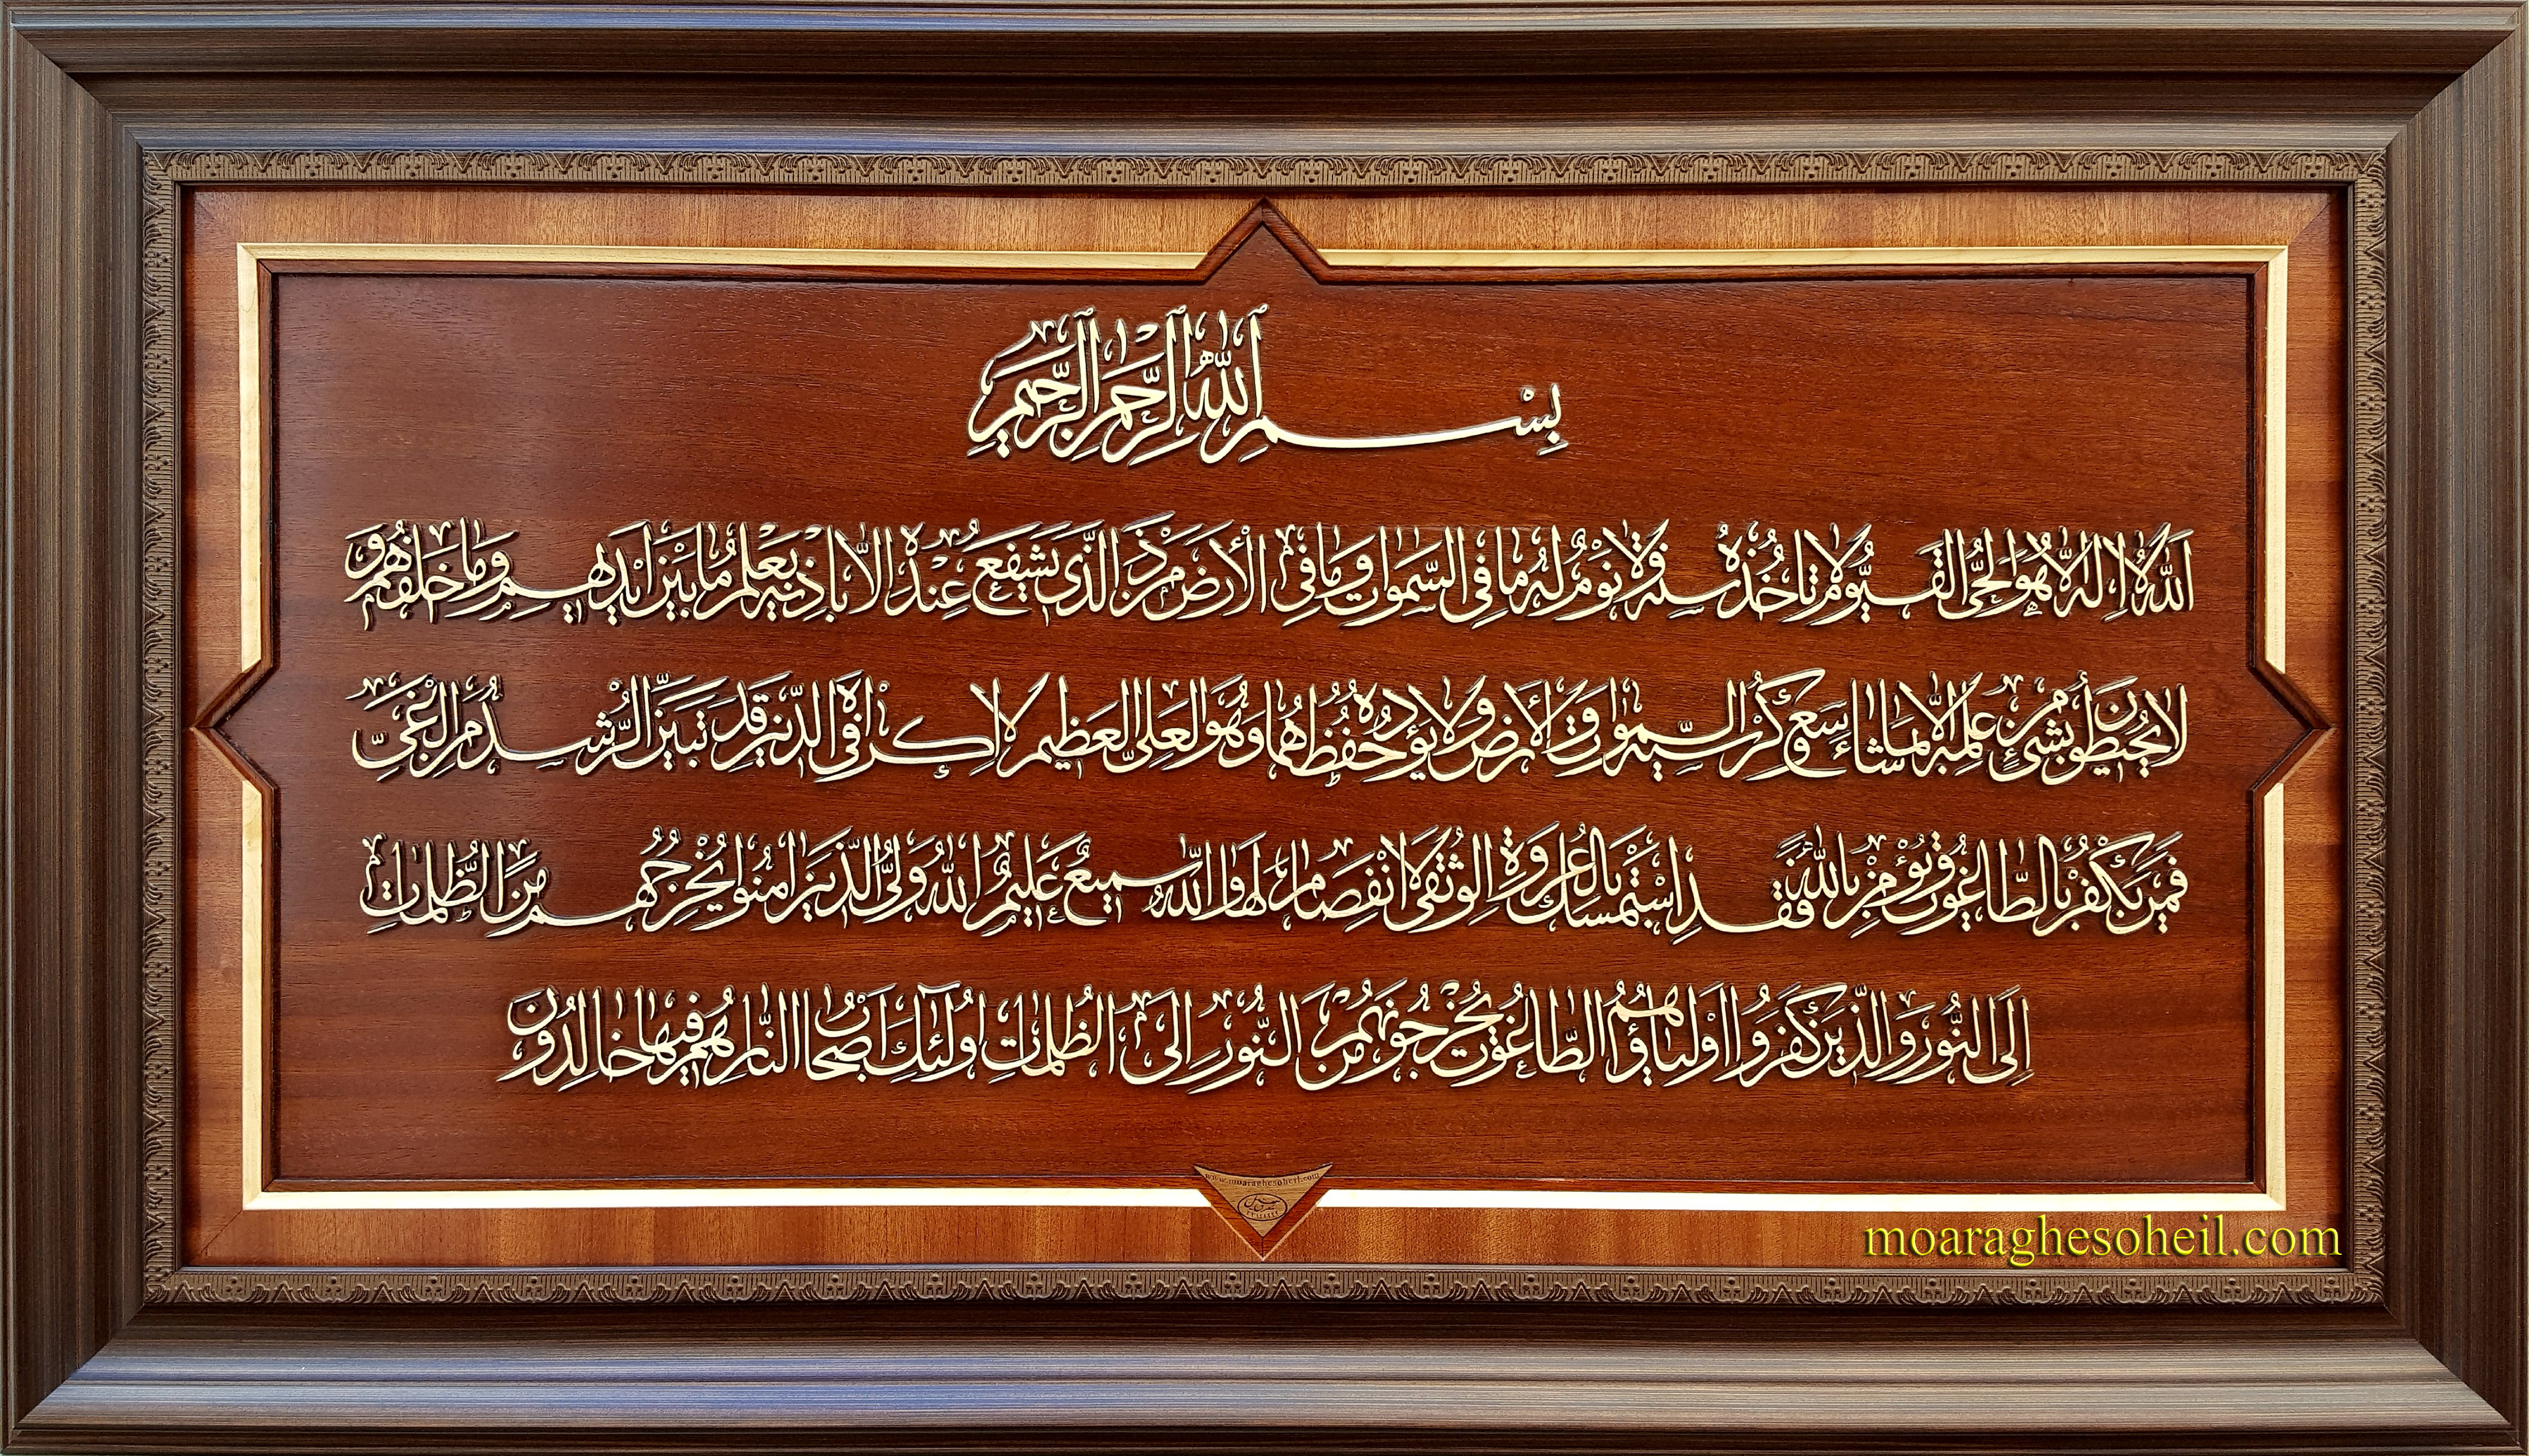 بِسْمِ اللهِ الرَّحْمنِ الرَّحیمِ
اَللهُ لا اِلهَ اِلاّ هُوَ الْحَىُّ الْقَیُّومُ لا تَأخُذُهُ سِنَةٌ وَلا نَوْمٌ لَهُ ما فِی السَّمواتِ وَ ما فِی الْاَرْضِ مَنْ ذَا الَّذی یَشْفَعُ عِنْدَهُ اِلاّ بِاِذْنِهِ یَعْلَمُ ما بَیْنَ اَیْدیهِمْ وَ ما خَلْفَهُمْ وَ
لا یُحیطُونَ بِشَیْءٍ مِنْ عِلْمِهِ اِلاّ بِما شاءَ وَسِعَ کُرْسِیُّهُ السَّمواتِ وَ الْاَرْضَ وَ لا یَؤُدُهُ حِفْظُهُما وَ هُوَ الْعَلِیُّ الْعَظیمُ لا اِکْراهَ فِی الدّینِ قَدْ تَبَیَّنَ الرُّشْدُ مِنَ الْغَیِّ
فَمَنْ یَکْفُرْ بِالطّاغُوتِ وَ یُؤْمِنْ بِاللهِ فَقَدِ اسْتَمْسَکَ بِالْعُرْوَةِ الْوُثْقی لَا انْفِصامَ لَها وَ اللهُ سَمیعٌ عَلیمٌ اَللهُ وَلِیُّ الَّذینَ امَنُوا یُخْرِجُهُمْ مِنَ الظُّلُماتِ
اِلَی النُّورِ وَ الَّذینَ کَفَرُوا اَوْلِیاؤُهُمُ الطّاغُوتُ یُخْرِجُونَهُمْ مِنَ النُّورِ اِلَی الظُّلُماتِ اُولئِکَ اَصْحابُ النّارِ هُمْ فیها خالِدُونَ
www.moaraghesoheil.com
moaraghesoheil.com